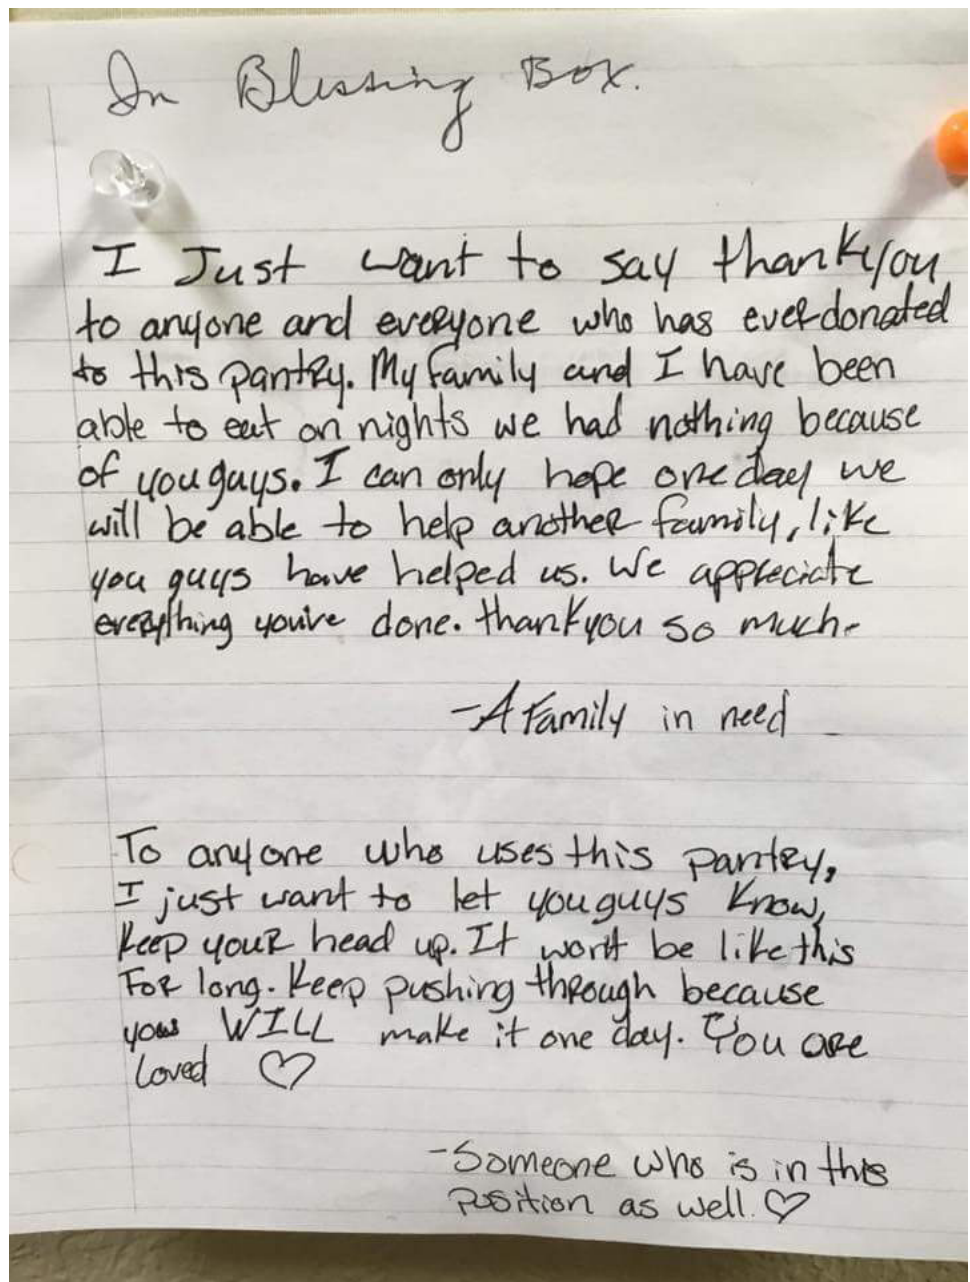 In Blessing Box.
I Just want to say thankyou
to anyone and everyone who has ever donated
to this pantry. My family and I have been
able to eat on nights we had nothing because
of you guys. I can only hope one day we
will be able to help another family, like
you guys have helped us. We appreciate
everything you've done. thankyou so much.
-A Family in need
To anyone who uses this pantry,
I just want to let you guys know,
keep your head up. It won't be like this
For long. Keep pushing through because
you WILL make it one day. You are
loved ♡
-Someone who is in this
position as well. ♡